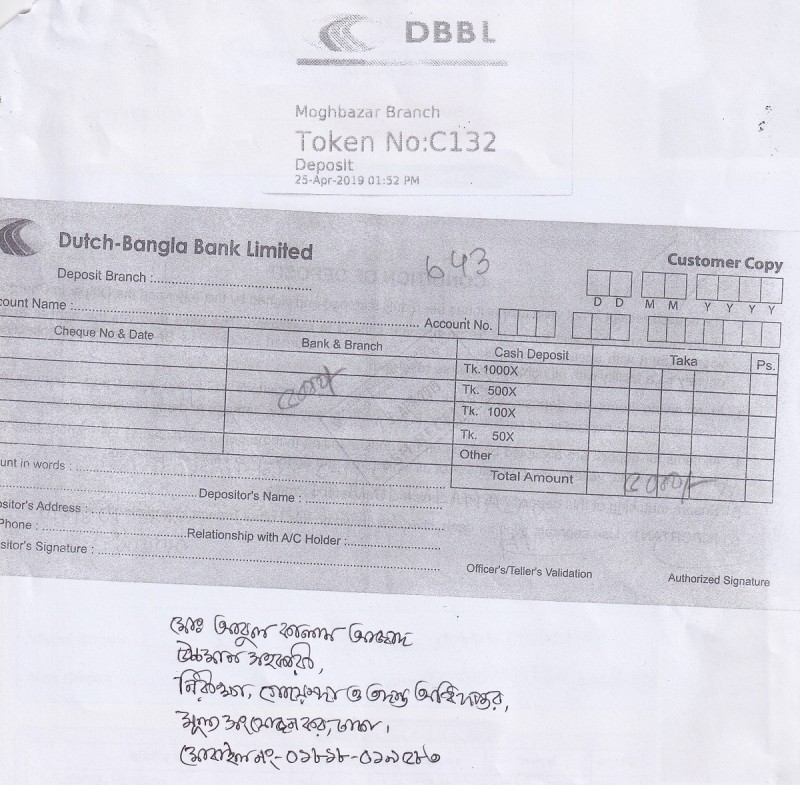 DBBL
Moghbazar Branch
Token No:C132
Deposit
25-Apr-2019 01:52 PM
Dutch-Bangla Bank Limited
643
Customer Copy
Deposit Branch :
D D M M Y Y Y Y
count Name :
Account No.
Cheque No & Date
Bank & Branch
Cash Deposit
Taka
Ps.
Tk. 1000X
Tk. 500X
Tk. 100X
Tk. 50X
Other
Total Amount
unt in words :
Depositor's Name :
ositor's Address :
Phone :
Relationship with A/C Holder :
sitor's Signature :
Officer's/Teller's Validation
Authorized Signature
মোঃ আবুল কালাম আজাদ
সহকারী,
নিরীক্ষা, গোয়েন্দা ও তদন্ত অধিদপ্তর,
মূল্য সংযোজন কর, ঢাকা।
মোবাইল নং-